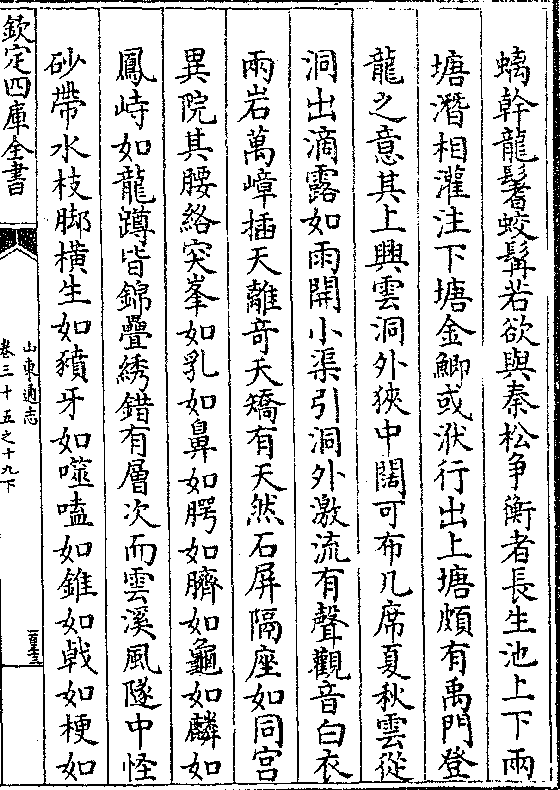 螭幹龍鬐蛟髯若欲與秦松争衡者長生池上下兩
塘潛相灌注下塘金鯽或洑行出上塘頗有禹門登
龍之意其上興雲洞外狹中闊可布几席夏秋雲從
洞出滴露如雨開小渠引洞外激流有聲觀音白衣
兩岩萬嶂插天離竒夭矯有天然石屏隔座如同宫
異院其腰絡突峯如乳如鼻如腭如臍如龜如麟如
鳳峙如龍蹲皆錦疊綉錯有層次而雲溪風隧中怪
砂帶水枝脚橫生如豶牙如噬嗑如錐如㦸如梗如
欽定四庫全書
山東通志
卷三十五之十九下